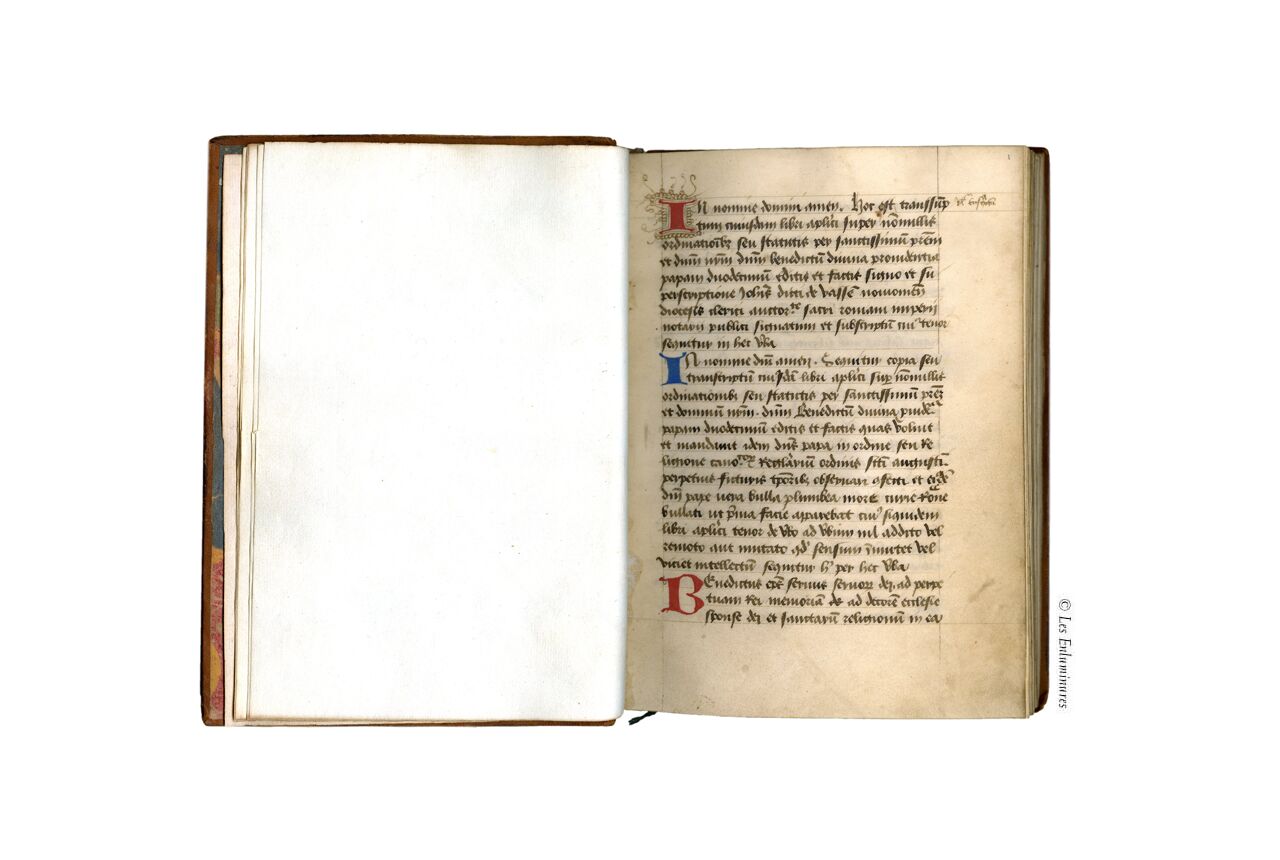 In nomine domini amen. Hoc est transsūp
tum cuiusdam libri aplici super nōnullis
ordinationibz seu statutis per sanctissimū prēm
et dnm nrm dnm benedictū diuina prouidentia
papam duodecimū editis et factis signo et su
perscriptione Johīs dicti de
diocesis clerici auctorte sacri romani imperii
notarii publici signatum et subscriptū cuis tenor
sequitur in hec vba
In nomine dni amen. Sequitur copia seu
transcriptū cuiusdā libri aplici sup nōnullis
ordinationibz seu statutis per sanctissimū prēm
et dominū nrm. dnm Benedictū diuina puidēa
papam duodecimū editis et factis quas voluit
et mandauit idem dns papa in ordine seu re
ligione canoror et reglariūm ordinis scti augustī
perpetuis futuris tporibz obseruari et
dni pape vera bulla plumbea more curie Rone
bullati ut pma facie apparebat cuis siquidem
libri aplici tenor de vbo ad vbum nil addito vel
remoto aut mutato qd sensum īmutet vel
viciet intellectū sequitur per hec vba
Benedictus epc seruus seruorz dei ad perpe
tuam Rei memoriā de ad decorē ecclesie
sponse dei et sanctarū religionum in ea
© Les Enluminures